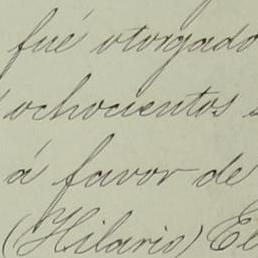 fué otorgado
ochocientos
á favor de
(Hilario) El